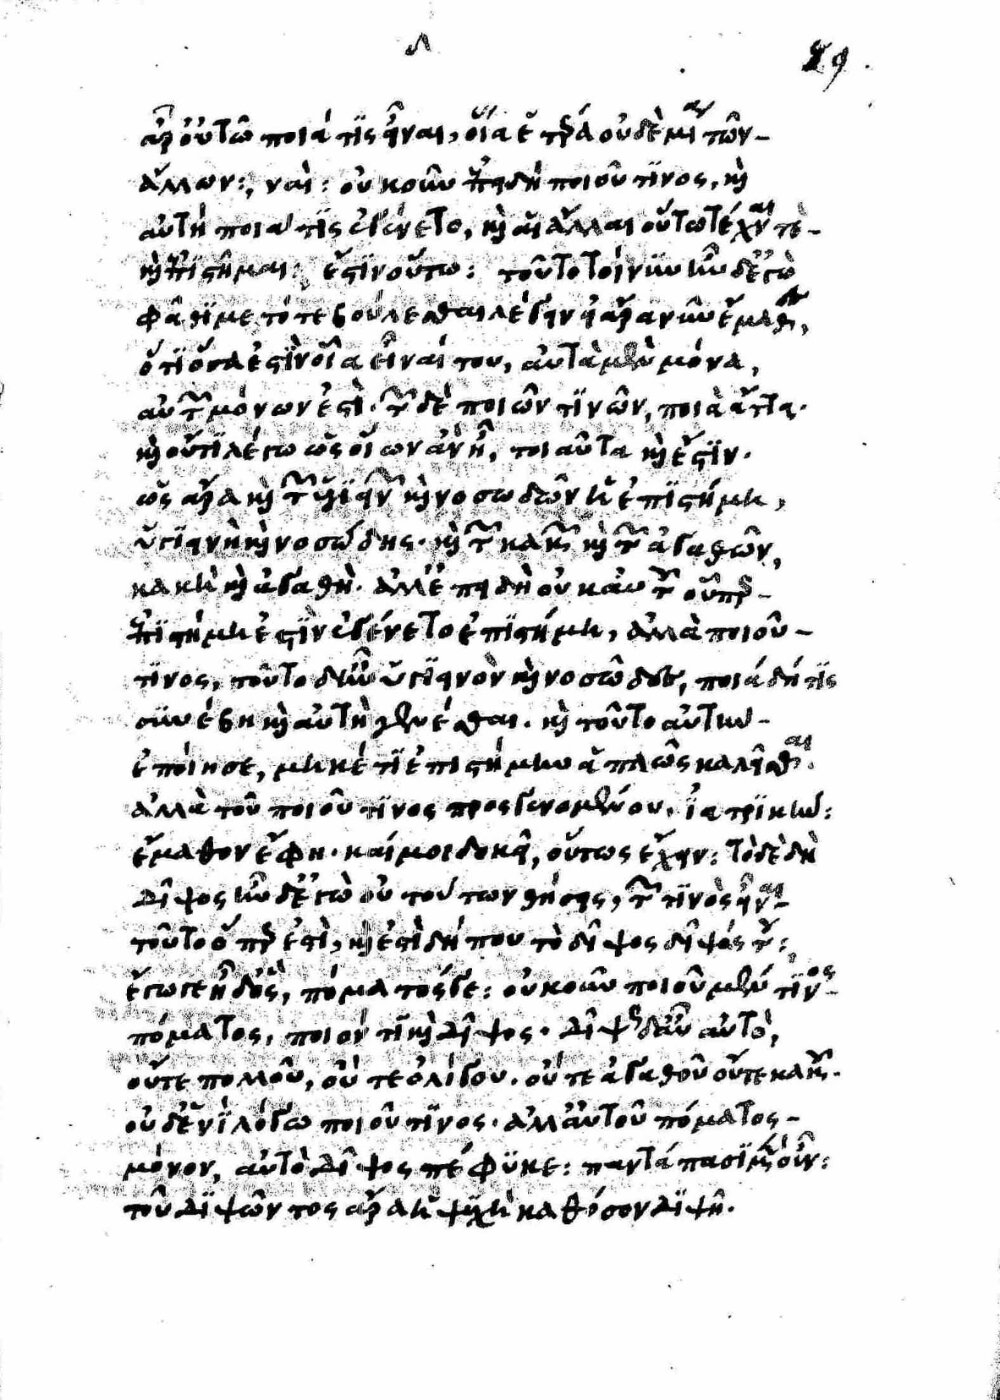 89
ἆρ' οὐ τῷ ποιά τις εἶναι, οἵα ἑτέρα οὐδεμία τῶν
ἄλλων:, ναί: οὐκοῦν ἐπειδὴ ποιοῦ τινος, καὶ
αὐτὴ ποιά τις ἐγένετο, καὶ αἱ ἄλλαι οὕτω τέχναι τὲ
καὶ ἐπιστῆμαι: ἔστιν οὕτω: τοῦτο τοίνυν ἦν δ' ἐγὼ
φάθι με τότε βούλεσθαι λέγειν εἰ ἄρα νῦν ἔμαθες,
ὅτι ὅσα ἐστὶν οἷα εἶναί του, αὐτὰ μὲν μόνα,
αὐτῶν μόνων ἐστί. τῶν δὲ ποιῶν τινῶν, ποιὰ ἄττα.
καὶ οὔτι λέγω ὡς οἵων ἂν ᾖ, τοιαῦτα καὶ ἔστιν.
ὡς ἄρα καὶ τῶν ὑγιεινῶν καὶ νοσωδῶν ἡ ἐπιστήμη,
ὑγιεινὴ καὶ νοσώδης. καὶ τῶν κακῶν καὶ τῶν ἀγαθῶν,
κακὴ καὶ ἀγαθὴ. ἀλλ' ἐπειδὴ οὐκ αὐτοῦ οὗπερ
ἐπιστήμη ἐστὶν ἐγένετο ἐπιστήμη, ἀλλὰ ποιοῦ
τινος, τοῦτο δ' ἦν ὑγιεινὸν καὶ νοσῶδες, ποιὰ δή τις
συνέβη καὶ αὐτὴ γενέσθαι. καὶ τοῦτο αὐτὴν
ἐποίησε, μηκέτι ἐπιστήμην ἁπλῶς καλεῖσθαι.
ἀλλὰ τοῦ ποιοῦ τινος προσγενομένου, ἰατρικήν:
ἔμαθον ἔφη. καί μοι δοκεῖ, οὕτως ἔχειν: τὸ δὲ δὴ
δῖψος ἦν δ' ἐγὼ οὐ τούτων θήσεις, τῶν τινὸς εἶναι
τοῦτο ὅπερ ἐστί, καὶ ἐστὶ δήπου τὸ δῖψος δίψος του:
ἔγωγε ἦ δ' ὅς, πόματός γε: οὐκοῦν ποιοῦ μέν τινος
πόματος, ποιόν τι καὶ δῖψος. δῖψος δ' οὖν αὐτὸ,
οὔτε πολλοῦ, οὔτε ὀλίγου. οὔτε ἀγαθοῦ οὔτε κακοῦ.
οὐδ' ἑνὶ λόγῳ ποιοῦ τινος. ἀλλ' αὐτοῦ πόματος
μόνον, αὐτὸ δῖψος πέφυκε: παντάπασι μὲν οὖν:
τοῦ διψῶντος ἄρα ἡ ψυχὴ καθόσον διψῇ.